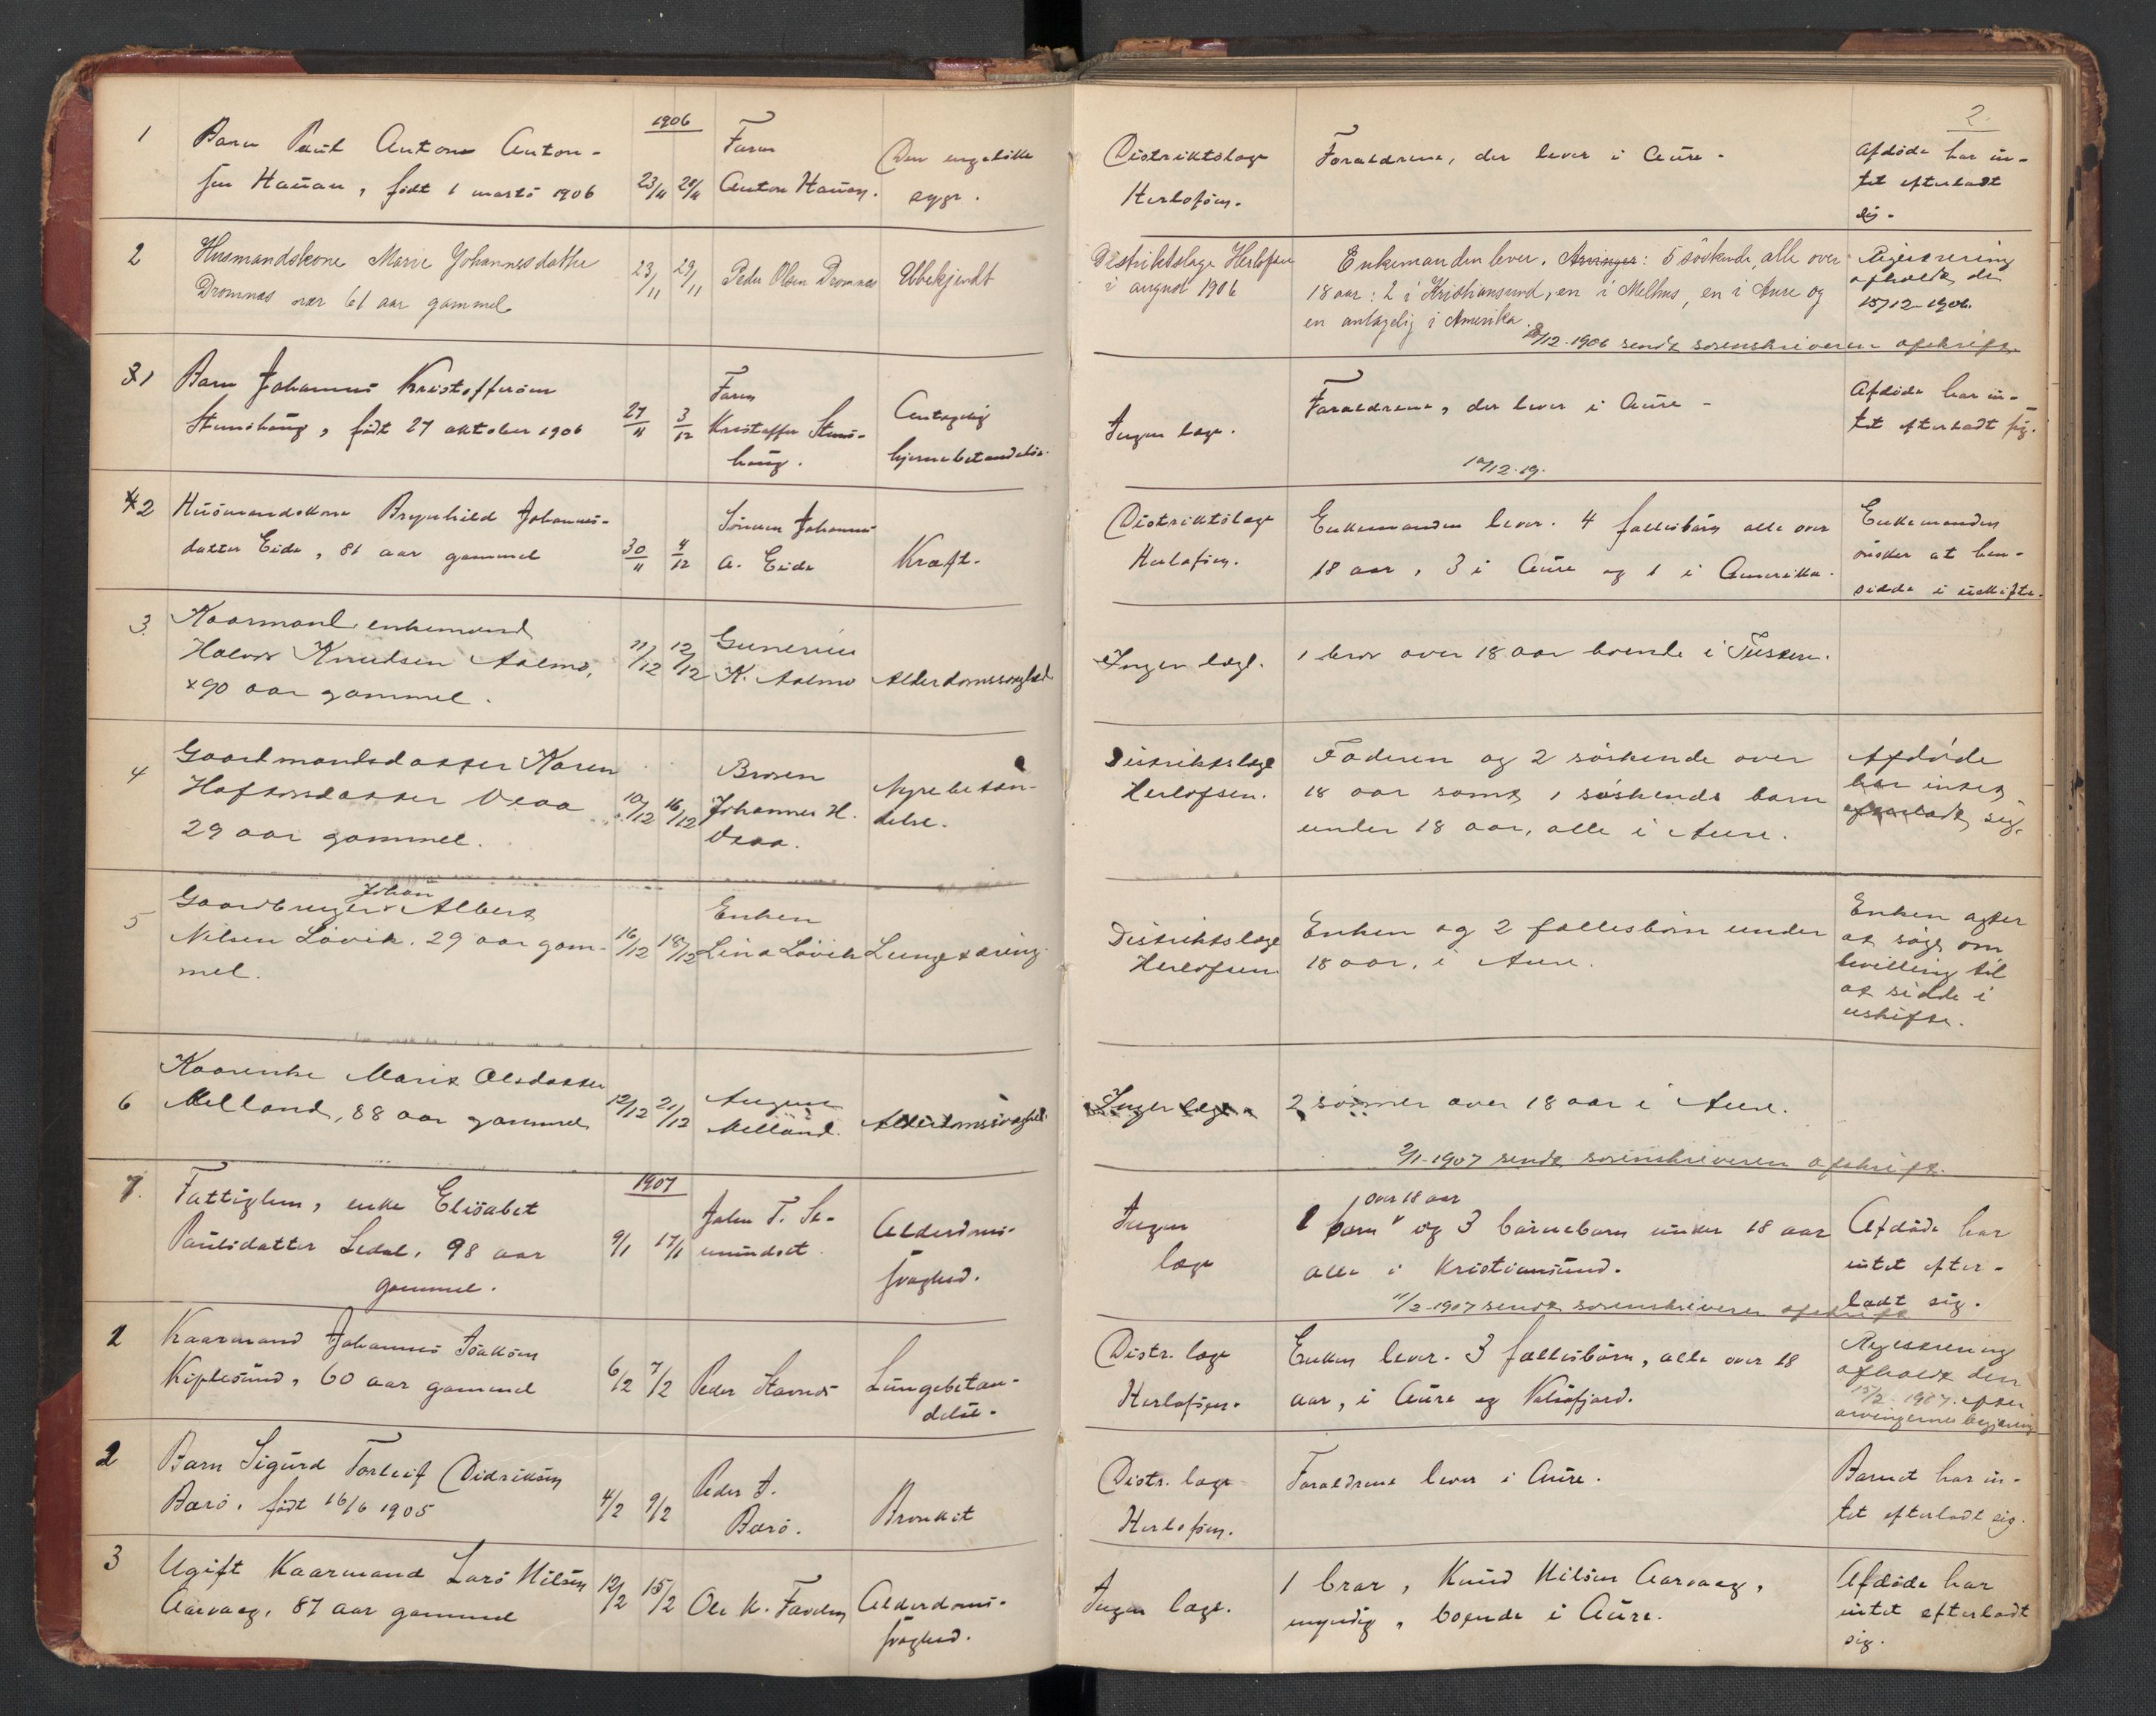 2.
1906
1 Barn Paul Anton Anton-
sen Hauan, født 1 marts 1906 23/11 28/11
Faren
Anton Hauan.
Den engelske
syge.
Distriktslæge
Herlofsen.
Forældrene, der lever i Aure.
Afdøde har in-
tet efterladt
sig.
2 Husmandskone Marie Johannesdatter
Dromnæs nær 61 aar gammel
23/11 29/11
Peder Olsen Dromnæs
Ubekjendt
Distriktslæge Herlofsen
i august 1906
Enkemanden lever. Arvinger: 5 søskende, alle over
18 aar: 2 i Kristiansund, en i Melhus, en i Aure og
en antagelig i Amerika.
/12-1906 sendt sorenskriveren afskrift
Registrering
afholdt den
15/12-1906.
3 1 Barn Johannes Kristoffersen
Stenshaug, født 27 oktober 1906
27/11 3/12
Faren
Kristoffer Stens-
haug.
Antagelig
hjernebetændelse.
Ingen læge.
Forældrene, der lever i Aure
10/12.19.
Afdøde har in-
tet efterladt sig.
4 2 Husmandskone Brynhild Johannes-
datter Eide, 81 aar gammel
30/11 4/12
Sønnen Johannes
A. Eide
Kræft.
Distriktslæge
Herlofsen.
Enkemanden lever. 4 fællesbørn alle over
18 aar, 3 i Aure og 1 i Amerika.
Enkemanden
ønsker at hen-
sidde i uskifte.
3. Kaarmand enkemand
Halvor Knudsen Aalmo,
90 aar gammel.
11/12 12/12
Gunerius
K. Aalmo
Alderdomssvaghed
Ingen læge.
1 bror over 18 aar boende i Tustern.
4 Gaardmandsdatter Karen
Haftorsdatter Vaaa
29 aar gammel.
10/12 16/12
Broren
Johannes H.
Nyrebetæn-
delse.
Distriktslæge
Herlofsen.
Faderen og 2 søskende over
18 aar samt 1 søskende barn
under 18 aar, alle i Aure.
Afdøde
har intet
efterladt sig.
Johan
5 Gaardbruger Albert
Nilsen Løvik. 29 aar gam-
mel.
16/12 18/12
Enken
Lina Løvik
Lungetæring.
Distriktslæge
Herlofsen
Enken og 2 fællesbørn under
18 aar, i Aure.
Enken agter
at søge om
bevilling til
at sidde i
uskifte.
6 Kaarenke Marit Olsdatter
Melland, 88 aar gammel
12/12 21/12
August
Melland.
Alderdomssvaghed.
Ingen læge.
2 sønner over 18 aar i Aure.
2/1-1907 sendt sorenskriveren afskrift.
1907
7. Fattiglem, enke Elisabet
Paulsdatter Ledal, 98 aar
gammel.
9/1 17/1
John T. Le-
Alderdoms-
svaghed.
Ingen
læge
over 18 aar
1 barn og 3 børnebørn under 18 aar
alle i Kristiansund.
11/2-1907 sendt sorenskriveren afskrift
Afdøde har
intet efter-
ladt sig.
1 Kaarmand Johannes Isaksen
Kiplesund, 60 aar gammel
6/2 7/2
Peder Stavnes
Lungebetæn-
delse.
Distr. læge
Herlofsen.
Enken lever. 3 fællesbørn, alle over 18
aar, i Aure og Valsøfjord.
Registrering
afholdt den
15/2 1907 efter
arvingernes begjæring
2 Barn Sigurd Torleif Didriksen
Barø, født 16/6 1905
4/2 9/2
Peder A.
Barø.
Bronkit
Distr. læge
Herlofsen.
Forældrene lever i Aure.
Barnet har in-
tet efterladt sig.
3 Ugift Kaarmand Lars Nilsen
Aarvaag, 87 aar gammel
12/2 15/2
Ole K.
Alderdoms-
svaghed.
Ingen læge.
1 bror, Knud Nilsen Aarvaag,
myndig, boende i Aure.
Afdøde har
intet efterladt
sig.